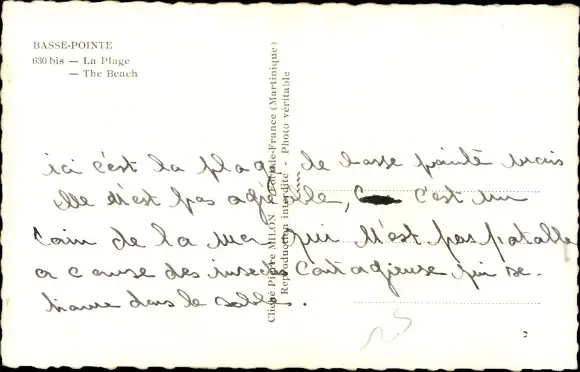 BASSE-POINTE
630 bis — La Plage
— The Beach
Cliché Pierre MILON - Fort-de-France (Martinique)
Reproduction interdite - Photo véritable
ici c'est la plage de basse pointe mais
elle n'est pas agréable, c'est un
coin de la mer qui n'est pas potable
a cause des insectes contagieuse qui se
trouve dans le sable.